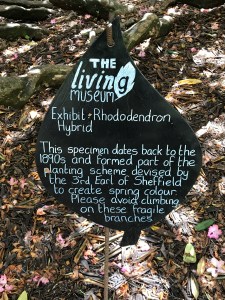 THE
living
MUSEUM
Exhibit - Rhododendron
Hybrid
This specimen dates back to the
1890s and formed part of the
planting scheme devised by
the 3rd Earl of Sheffield
to create spring colour.
Please avoid climbing
on these fragile
branches